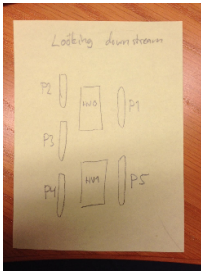 Looking downstream
P2
P1
P3
P4
P5